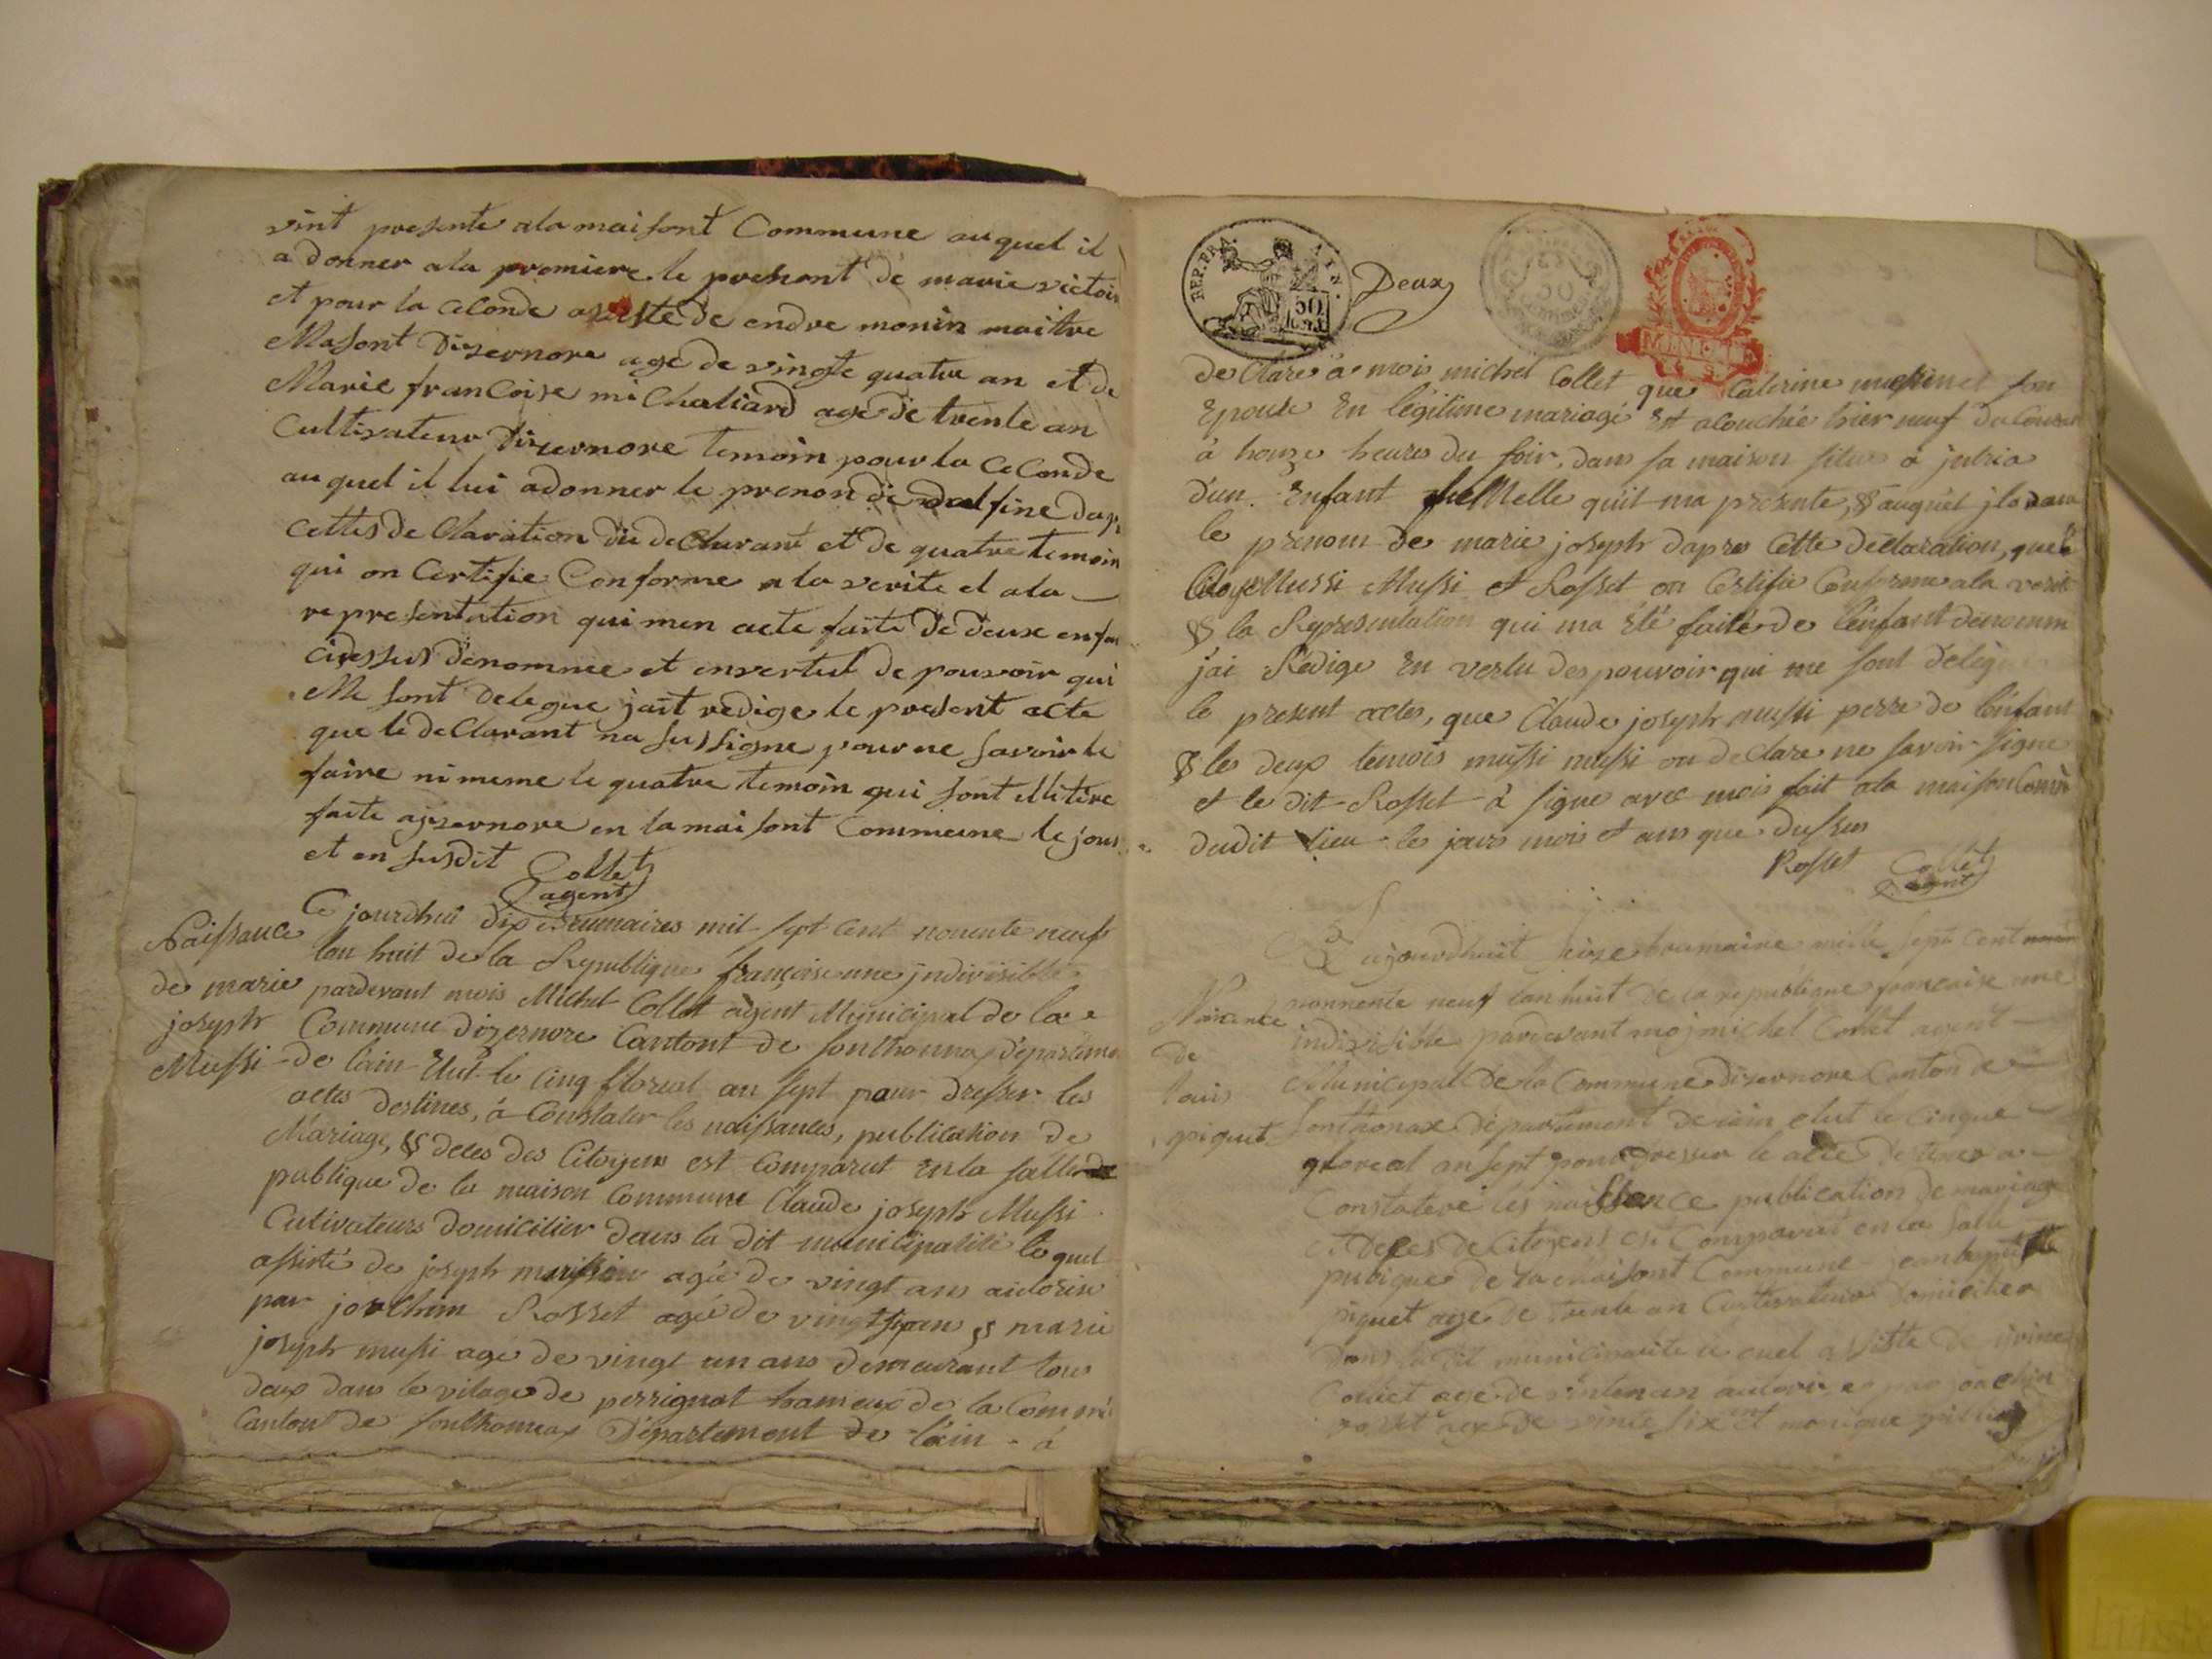 vint presente ala maisont Commune auquel il
a donner ala promiere le prenont de marie victoir
et pour la celonde assiste de endre monin maitre
Masont Dizernore agé de vingte quatre an et de
Marie francoise michaliard age de trente an
Cultivateur Dizernore temoin pour la Celonde
auquel il lui adonner le prenon de delfine dap
cettes de Claration du de Clarant et de quatre temoin
qui on Certifie Conforme ala verite et ala
representation qui men aete faite de deux enfan
cidessus denommee et envertut de pouvoir qui
Me sont delegue jait redige le present acte
que le deClarant na sussigne pour ne savoir le
faire ni meme le quatre temoin qui sont illitire
faite a jzernore en la maisont Commune le jour
et en susdit
Collet
agent
Naissance
de marie
joseph
Mussi
Ce jourdhui dix Brumaires mil sept cent nonente neuf
lan huit de la Republique françoise une jndivisible
pardevant mois Michel Collet agent Municipal de la
Commune dizernore Cantont de sonthonnax departeme
de lain Elut le cinq floreal an sept pour dresser les
actes destines, á Constater les naissances, publication de
Mariage, & deces des Citoyens est Comparut En la salle
publique de la maison Commune Claude joseph Mussi
Cutivateurs domicilier dans la dit municipalité lequel
assisté de joseph agée de vingt ans
par joachim Rosset agée de vingt six an & marie
joseph mussi agé de vingt un ans demeurant tous
deux dans le vilage de perrignat hameux de la Commu
Canton de sonthonnax Département de lain á
REP. FRA.
AIN.
50
Deux
50
de Clare á mois michel Collet que Caterine son
Epouse En légitime mariage Est acouchée hier neuf du Courant
á honze heures du soir, dans sa maison situe á
d'un Enfant femelle quit ma presente, & auquel
le prenom de marie joseph dapres Cette declaration, que
Citoye Mussi Mussi et Rosset on Certifie Conforme ala verit
& la Representation qui ma été faite de l'enfant denomm
j'ai Rédige En vertu des pouvoir qui me sont delegu
le present actes, que Claude joseph mussi perre de lénfant
& les deux temois mussi mussi on declare ne savoir signe
et le dit Rosset á signe avec mois fait ala maison Comu
dudit lieu les jours mois et ans que dussus
Rosset
Collet
agent
Naicence
de
Louis
piquet
ajourdhuit seize brumaire mille sept cent
nonnente neuf lan huit de la republique francaise une
indivisible pardevant moj michel Collet agent
Municipal de la Commune dizernore Canton de
sonthonax departement de lain elut le cinque
floreal an sept pour dresser le acte destines a
Constatere les naissance publication de mariage
et deces de Citoyens est Comparut en la salle
publique de la maisont Commune jean baptiste
piquet age de trente an Cultivateur domicilier
dans la dit municipalite le quel assiste de
Collet age de par joachin
rosset age de vinte six